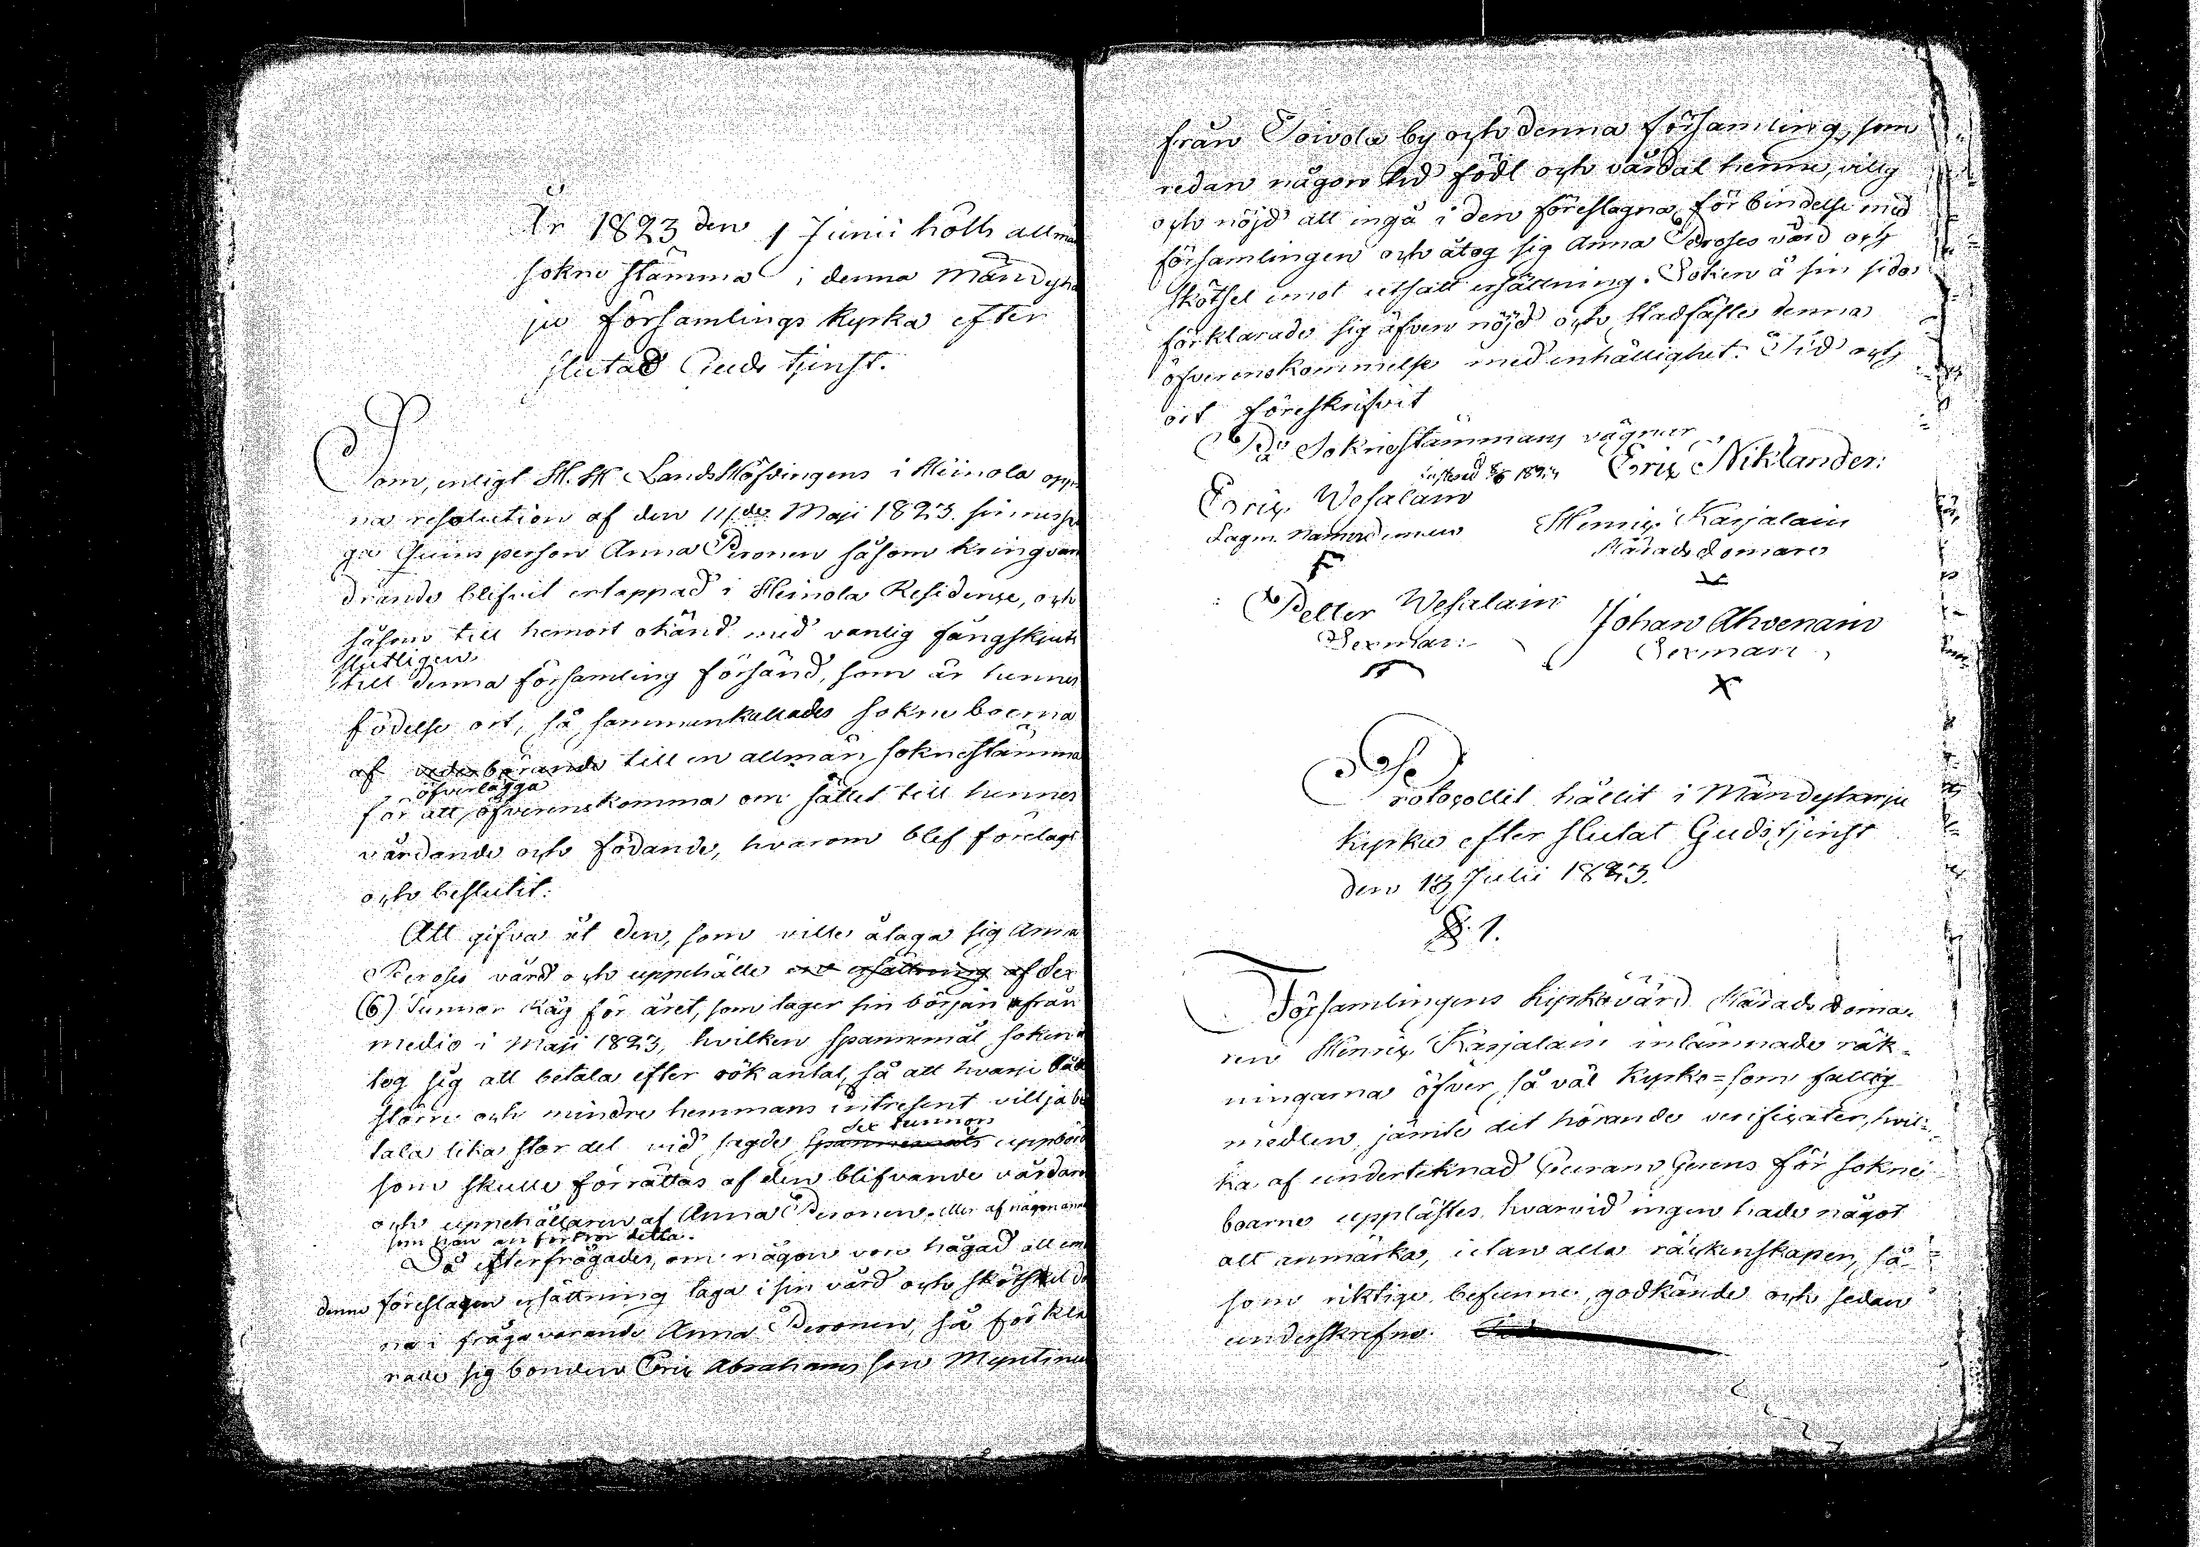 År 1823 den 1 Junii hölls allmän
sokne stämma i denna Mändyha
ju församlings kyrka efter
slutad Guds tjenst.
Som, enligt H. H. Landshöfdingens i Heinola öpp-
na resolution af den 11/de Maji 1823.
ga Quins person Anna Peronen såsom kringvan
drande blifvit ertappad i Heinola Residence, och
såsom till hemort okänd med vanlig fångskjuts
slutligen
till denna församling försänd, som är hennes
födelse ort, så sammankallades sokne boerna
af vederbörande till en allmän soknestämma
öfverlägga
för att öfverenskomma om sättet till hennes
vårdande och födande, hvarom blef förelagt
och beslutit:
Att gifva åt den, som ville åtaga sig Anna
Peroses vård och uppehälle en ersättning af sex
(6) Tunnor Råg för året, som tager sin början från
medio i Maji 1823, hvilken spannemål soken å
tog sig att betala efter rök antal, så att hvarje både
större och mindre hemmans intresent vill ja be
sex tunnors
tala lika stor del vid sagde spannemåls uppbörd
som skulle förrättas af den blifvande vårdaren
och uppehållaren af Anna Peronen. eller af någon annan
som han anförtror detta.
Då efterfrågades, om någon vore hågad att emot
denna föreslagen ersättning taga i sin vård och skötsel den
na i fråga varande Anna Peronen, så förkla
rade sig bonden Eric Abrahams son Myntinen
från Toivola by och denna församling, som
redan någon tid födt och vårdat henne, villig
och nöjd att ingå i den föreslagna förbindelse med
församlingen och åtog sig Anna Peroses vård och
skötsel emot utsatt ersättning. Soken å sin sida
förklarade sig äfven nöjd och stadfäste denna
öfverenskommelse med enhällighet. Tid och
ort föreskrifvit
På Soknestämmans vägnar
Eric Niklander:
Eric Wesalain
Lagm. Nämndeman
Henric Karjalain
Häradsdomare
Petter Wesalain
Sexman:
Johan Ahvenain
Sexman
Protocollit hållit i Mändyharju
kyrka efter slutat Gudstjenst
den 13 Julii 1823.
§ 1.
Församlingens kyrkovärd Häradsdoma-
ren Henric Karjalain inlämnade räk-
ningarna öfver så väl kyrko=som fattig
medlen jämte det hörande verificater, hvil-
ka af undertecknad Curam Gerens för sokne
boarne upplästes hvarvid ingen hade något
att anmärka, utan alla räkenskaper, så-
som riktiga befunne, godkände och sedan
underskrefne.